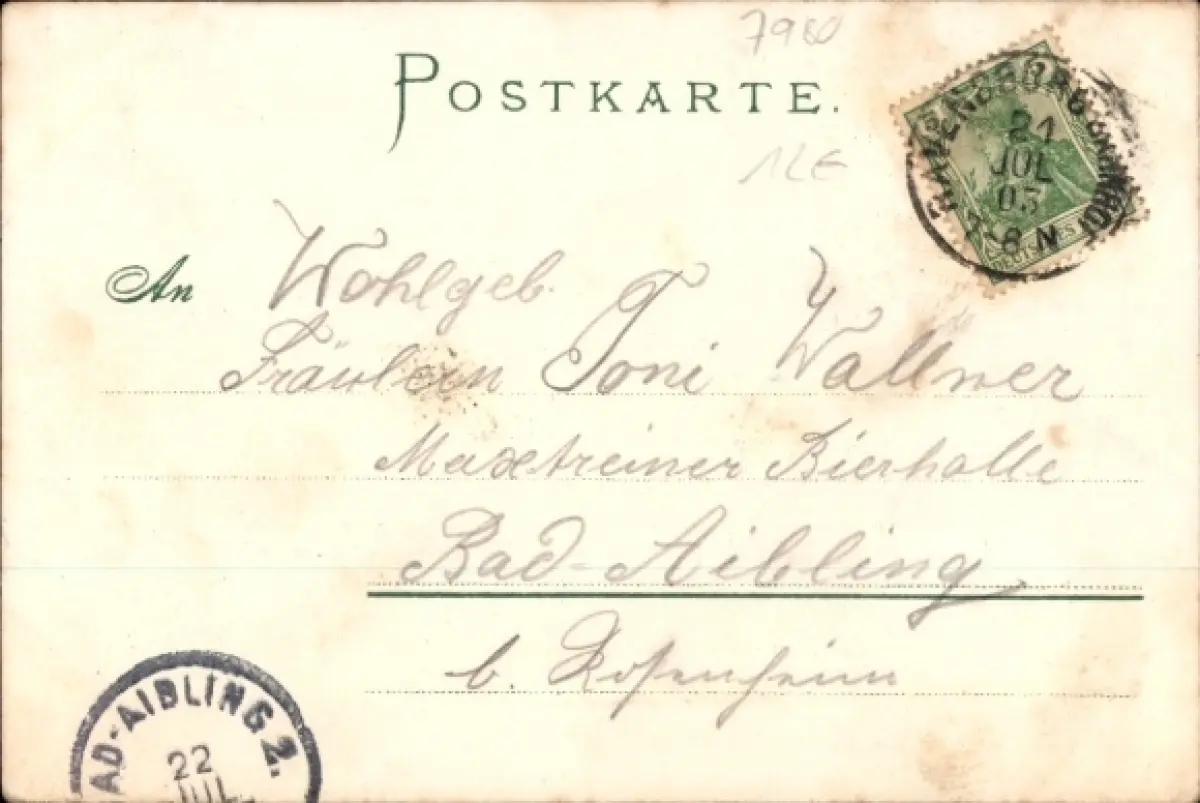 7980
POSTKARTE.
12E
21
JUL
03
7-8 N
An Wohlgeb.
Fräulein Toni Wallner
Maxlreiner Bierhalle
Bad-Aibling
b. Rosenheim
AD-AIBLING 2.
22
JUL